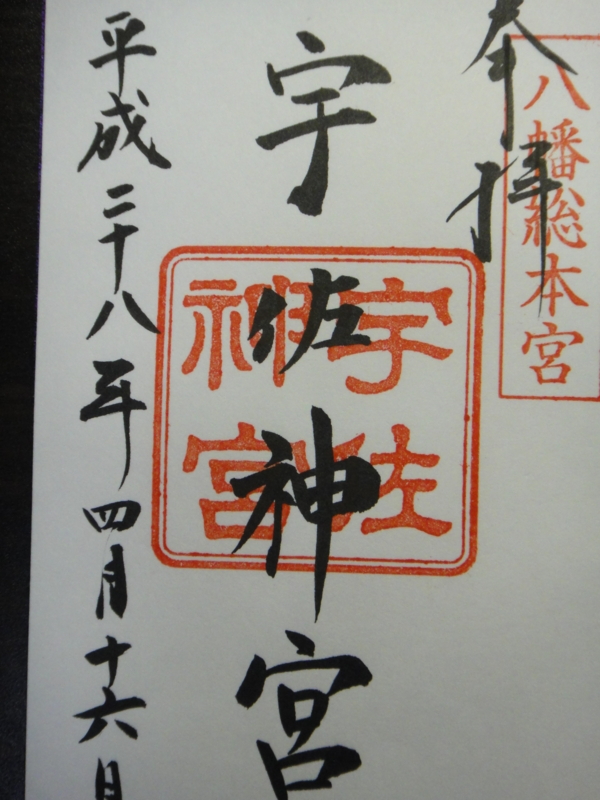 八幡総本宮
奉拝
宇佐神宮
宇佐
神宮
平成二十八年四月十六日